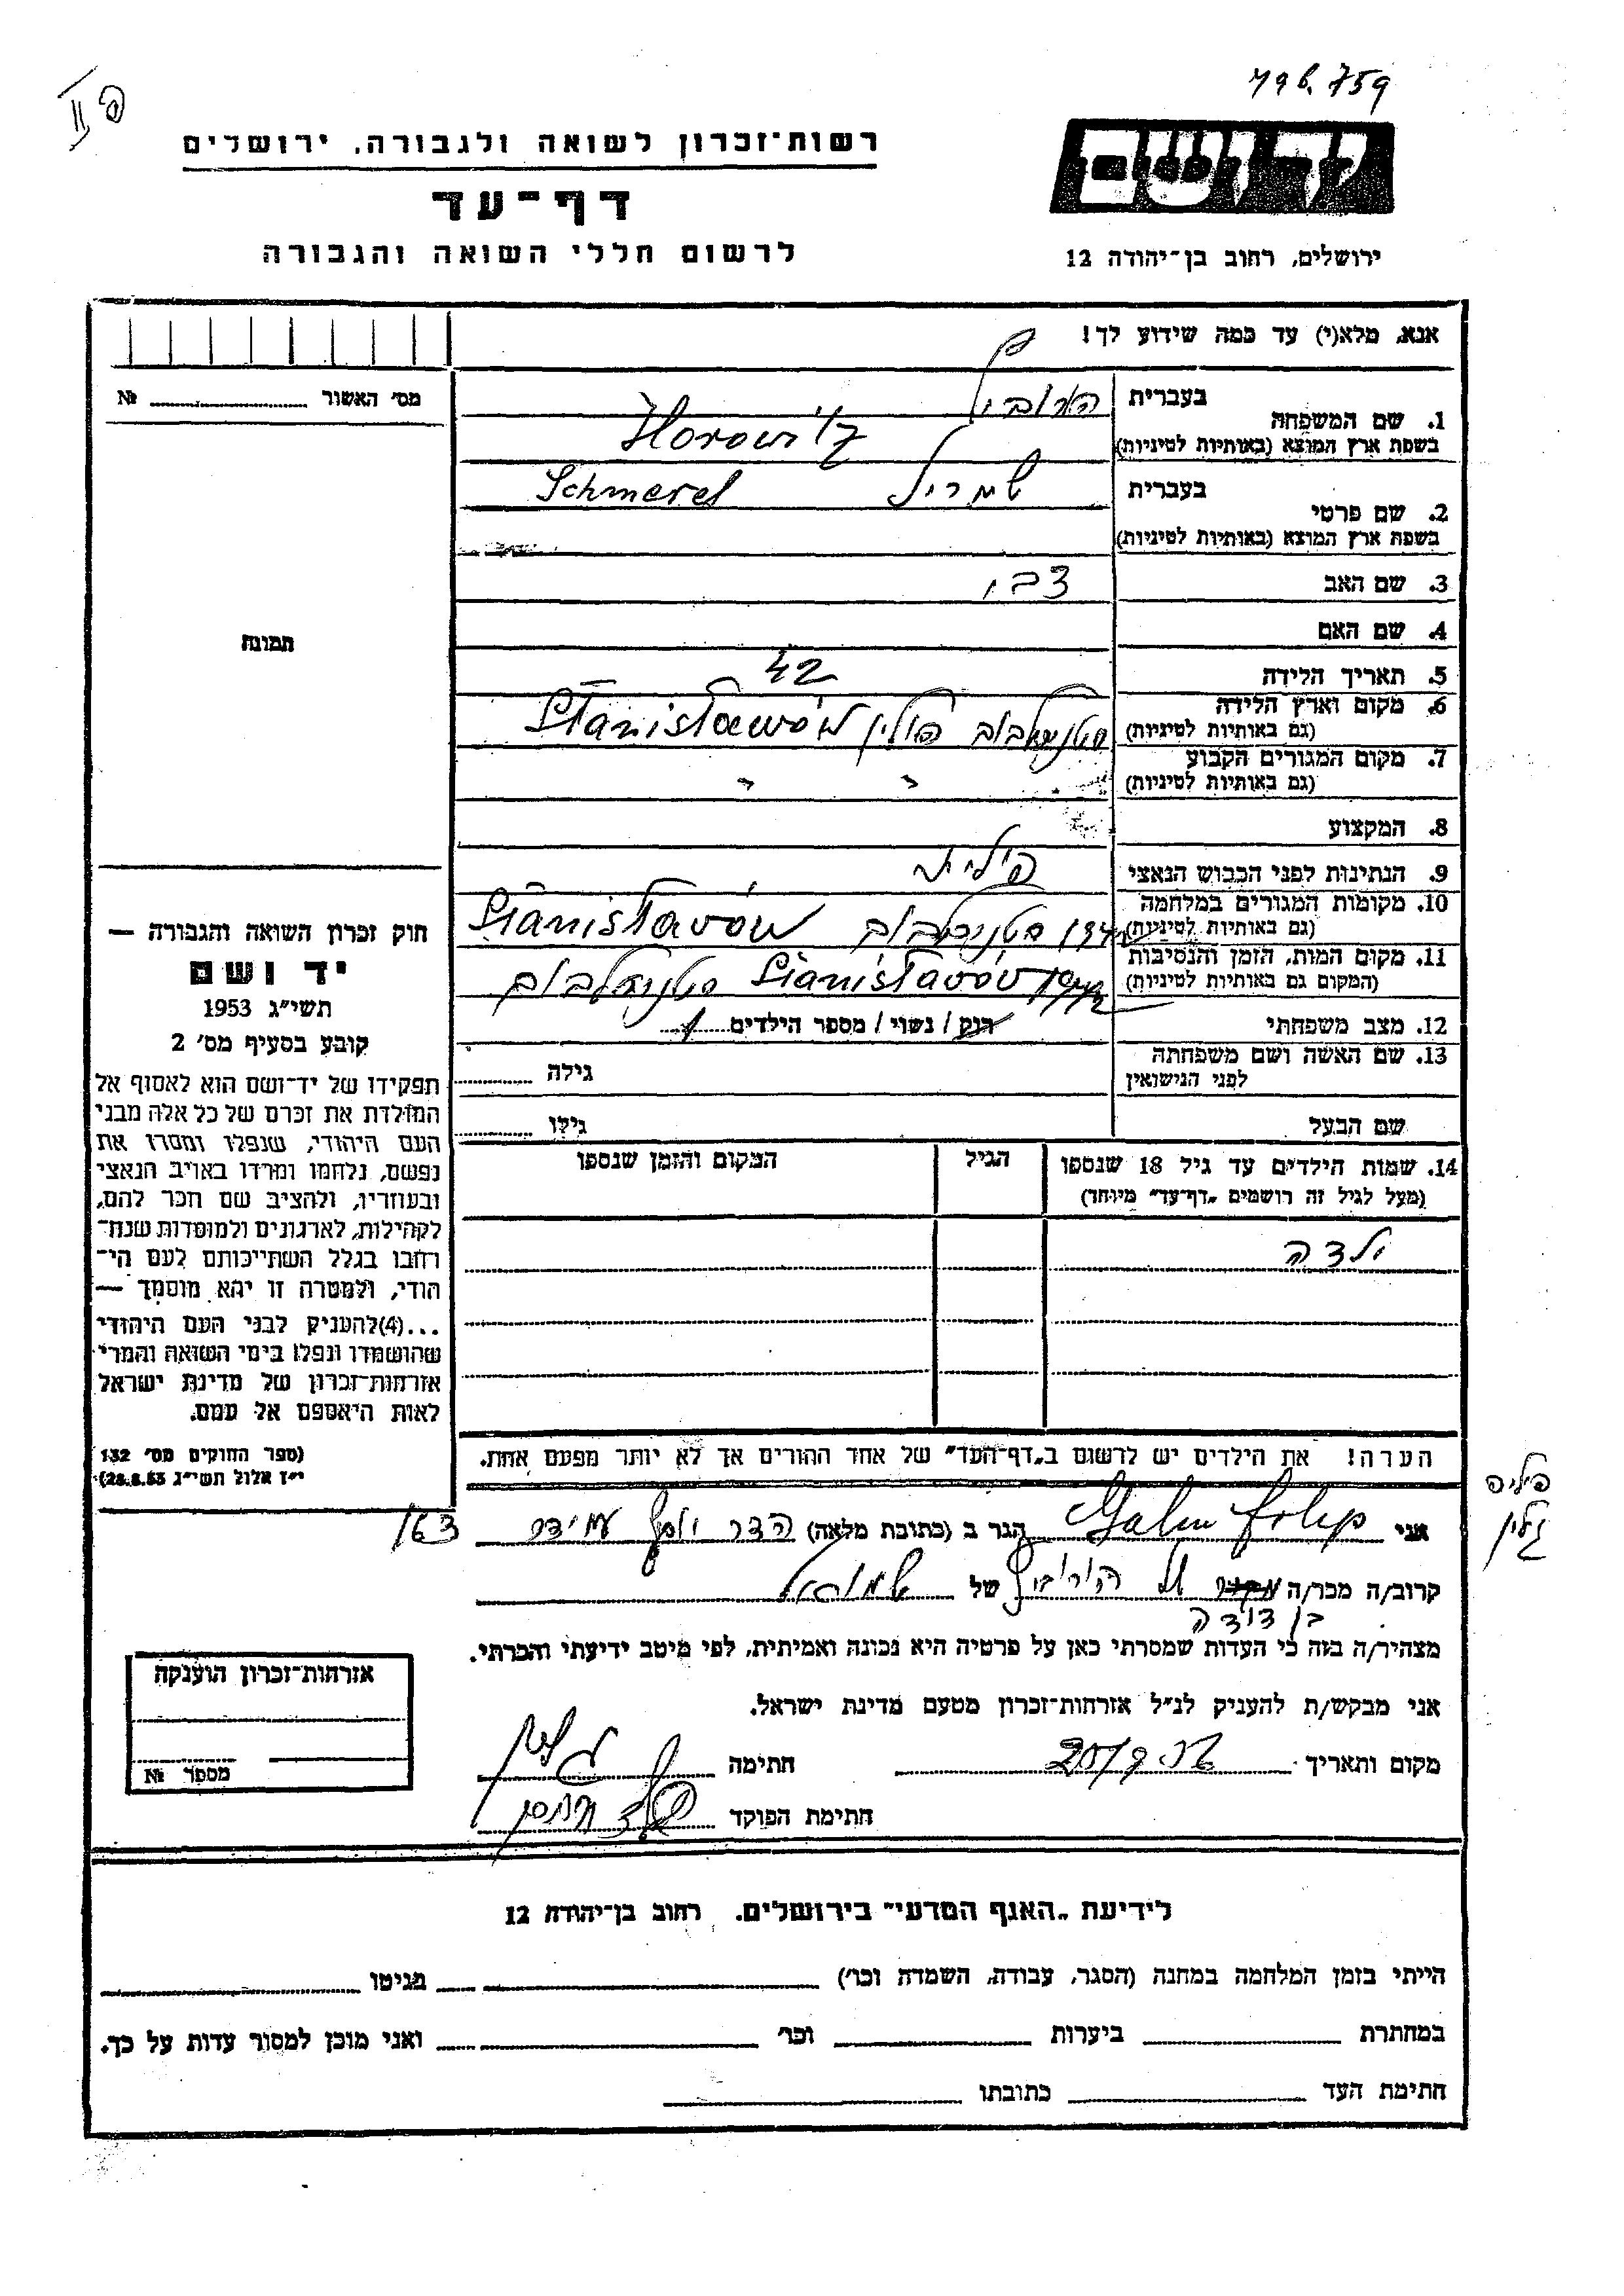 פ II
796.759
רשות־זכרון לשואה ולגבורה, ירושלים
דף־עד
לרשום חללי השואה והגבורה
יד ושם
ירושלים, רחוב בן־יהודה 12
אנא, מלא(י) עד כמה שידוע לך!
מס' האשור № 
1. שם המשפחה
בעברית
בשפת ארץ המוצא (באותיות לטיניות)
Horowitz
2. שם פרטי
בעברית שמריל Schmerel
בשפת ארץ המוצא (באותיות לטיניות)
3. שם האב צבי
4. שם האם
5. תאריך הלידה 42
6. מקום וארץ הלידה
(גם באותיות לטיניות)
סטניסלבוב פולין Stanisławów
7. מקום המגורים הקבוע
(גם באותיות לטיניות)
" "
8. המקצוע
9. הנתינות לפני הכבוש הנאצי פולית
10. מקומות המגורים במלחמה
(גם באותיות לטיניות)
סטניסלבוב Stanisławów
11. מקום המות, הזמן והנסיבות
(המקום גם באותיות לטיניות)
1942 Stanisławów סטניסלבוב
12. מצב משפחתי רווק / נשוי / מספר הילדים 1
13. שם האשה ושם משפחתה
לפני הנישואין
גילה
שם הבעל גילו
14. שמות הילדים עד גיל 18 שנספו
(מעל לגיל זה רושמים „דף־עד" מיוחד)
הגיל
המקום והזמן שנספו
ילדה
הערה! את הילדים יש לרשום ב„דף־העד" של אחד ההורים אך לא יותר מפעם אחת.
תמונה
חוק זכרון השואה והגבורה —
יד ושם
תשי"ג 1953
קובע בסעיף מס' 2
תפקידו של יד־ושם הוא לאסוף אל
המולדת את זכרם של כל אלה מבני
העם היהודי, שנפלו ומסרו את
נפשם, נלחמו ומרדו באויב הנאצי
ובעוזריו, ולהציב שם וזכר להם,
לקהילות, לארגונים ולמוסדות שנח־
רבו בגלל השתייכותם לעם הי־
הודי, ולמטרה זו יהא מוסמך —
...(4)להעניק לבני העם היהודי
שהושמדו ונפלו בימי השואה והמרי
אזרחות־זכרון של מדינת ישראל
לאות היאספם אל עמם.
(ספר החוקים מס' 132
י"ז אלול תשי"ג 28.8.53)
פיליפ
גלין
אני הגר ב (כתובת מלאה) הדר יוסף עמידר 163
קרוב/ה מכר/ה של שמואל
בן דודה
מצהיר/ה בזה כי העדות שמסרתי כאן על פרטיה היא נכונה ואמיתית, לפי מיטב ידיעתי והכרתי.
אני מבקש/ת להעניק לנ"ל אזרחות־זכרון מטעם מדינת ישראל.
מקום ותאריך חתימה
חתימת הפוקד
אזרחות־זכרון הוענקה
מספר №
לידיעת „האגף המדעי" בירושלים, רחוב בן־יהודה 12
הייתי בזמן המלחמה במחנה (הסגר, עבודה, השמדה וכו') בגיטו
במחתרת ביערות וכו' ואני מוכן למסור עדות על כך.
חתימת העד כתובתו